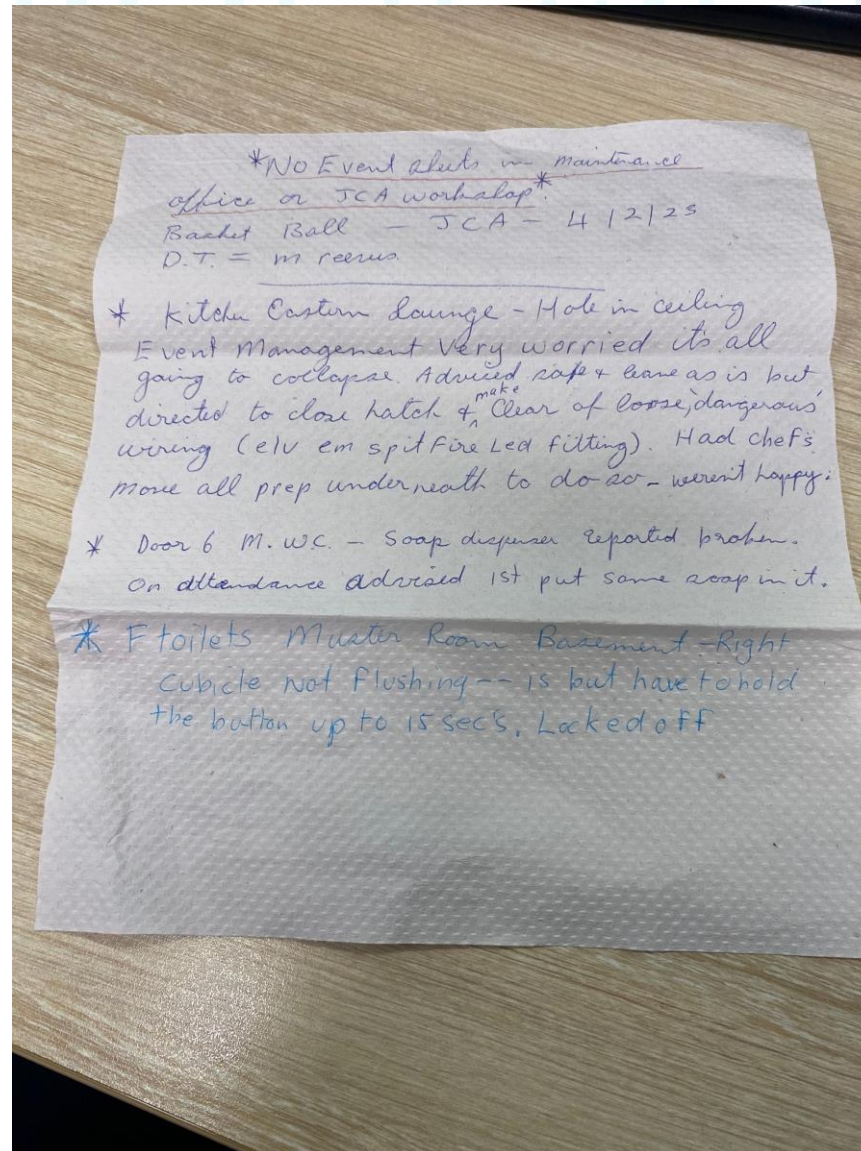 *No Event sheets in maintenance
office or JCA workshop*.
Basket Ball - JCA - 4/2/25
D.T. = m
* Kitchen Eastern Lounge - Hole in ceiling
Event Management Very worried it's all
going to collapse. Adviced safe & leave as is but
directed to close hatch & make Clear of loose, dangerous
wiring (elv em spitfire Led fitting). Had chefs
move all prep underneath to do so - weren't happy.
* Door 6 M. W.C. - Soap dispenser reported broken.
On attendance advised 1st put some soap in it.
* F toilets Muster Room Basement - Right
Cubicle Not flushing -- is but have to hold
the button up to 15 sec's. Locked off